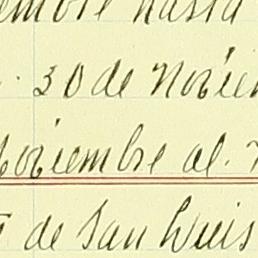 hasta
30 de Novie
oviembre al
de San Luis